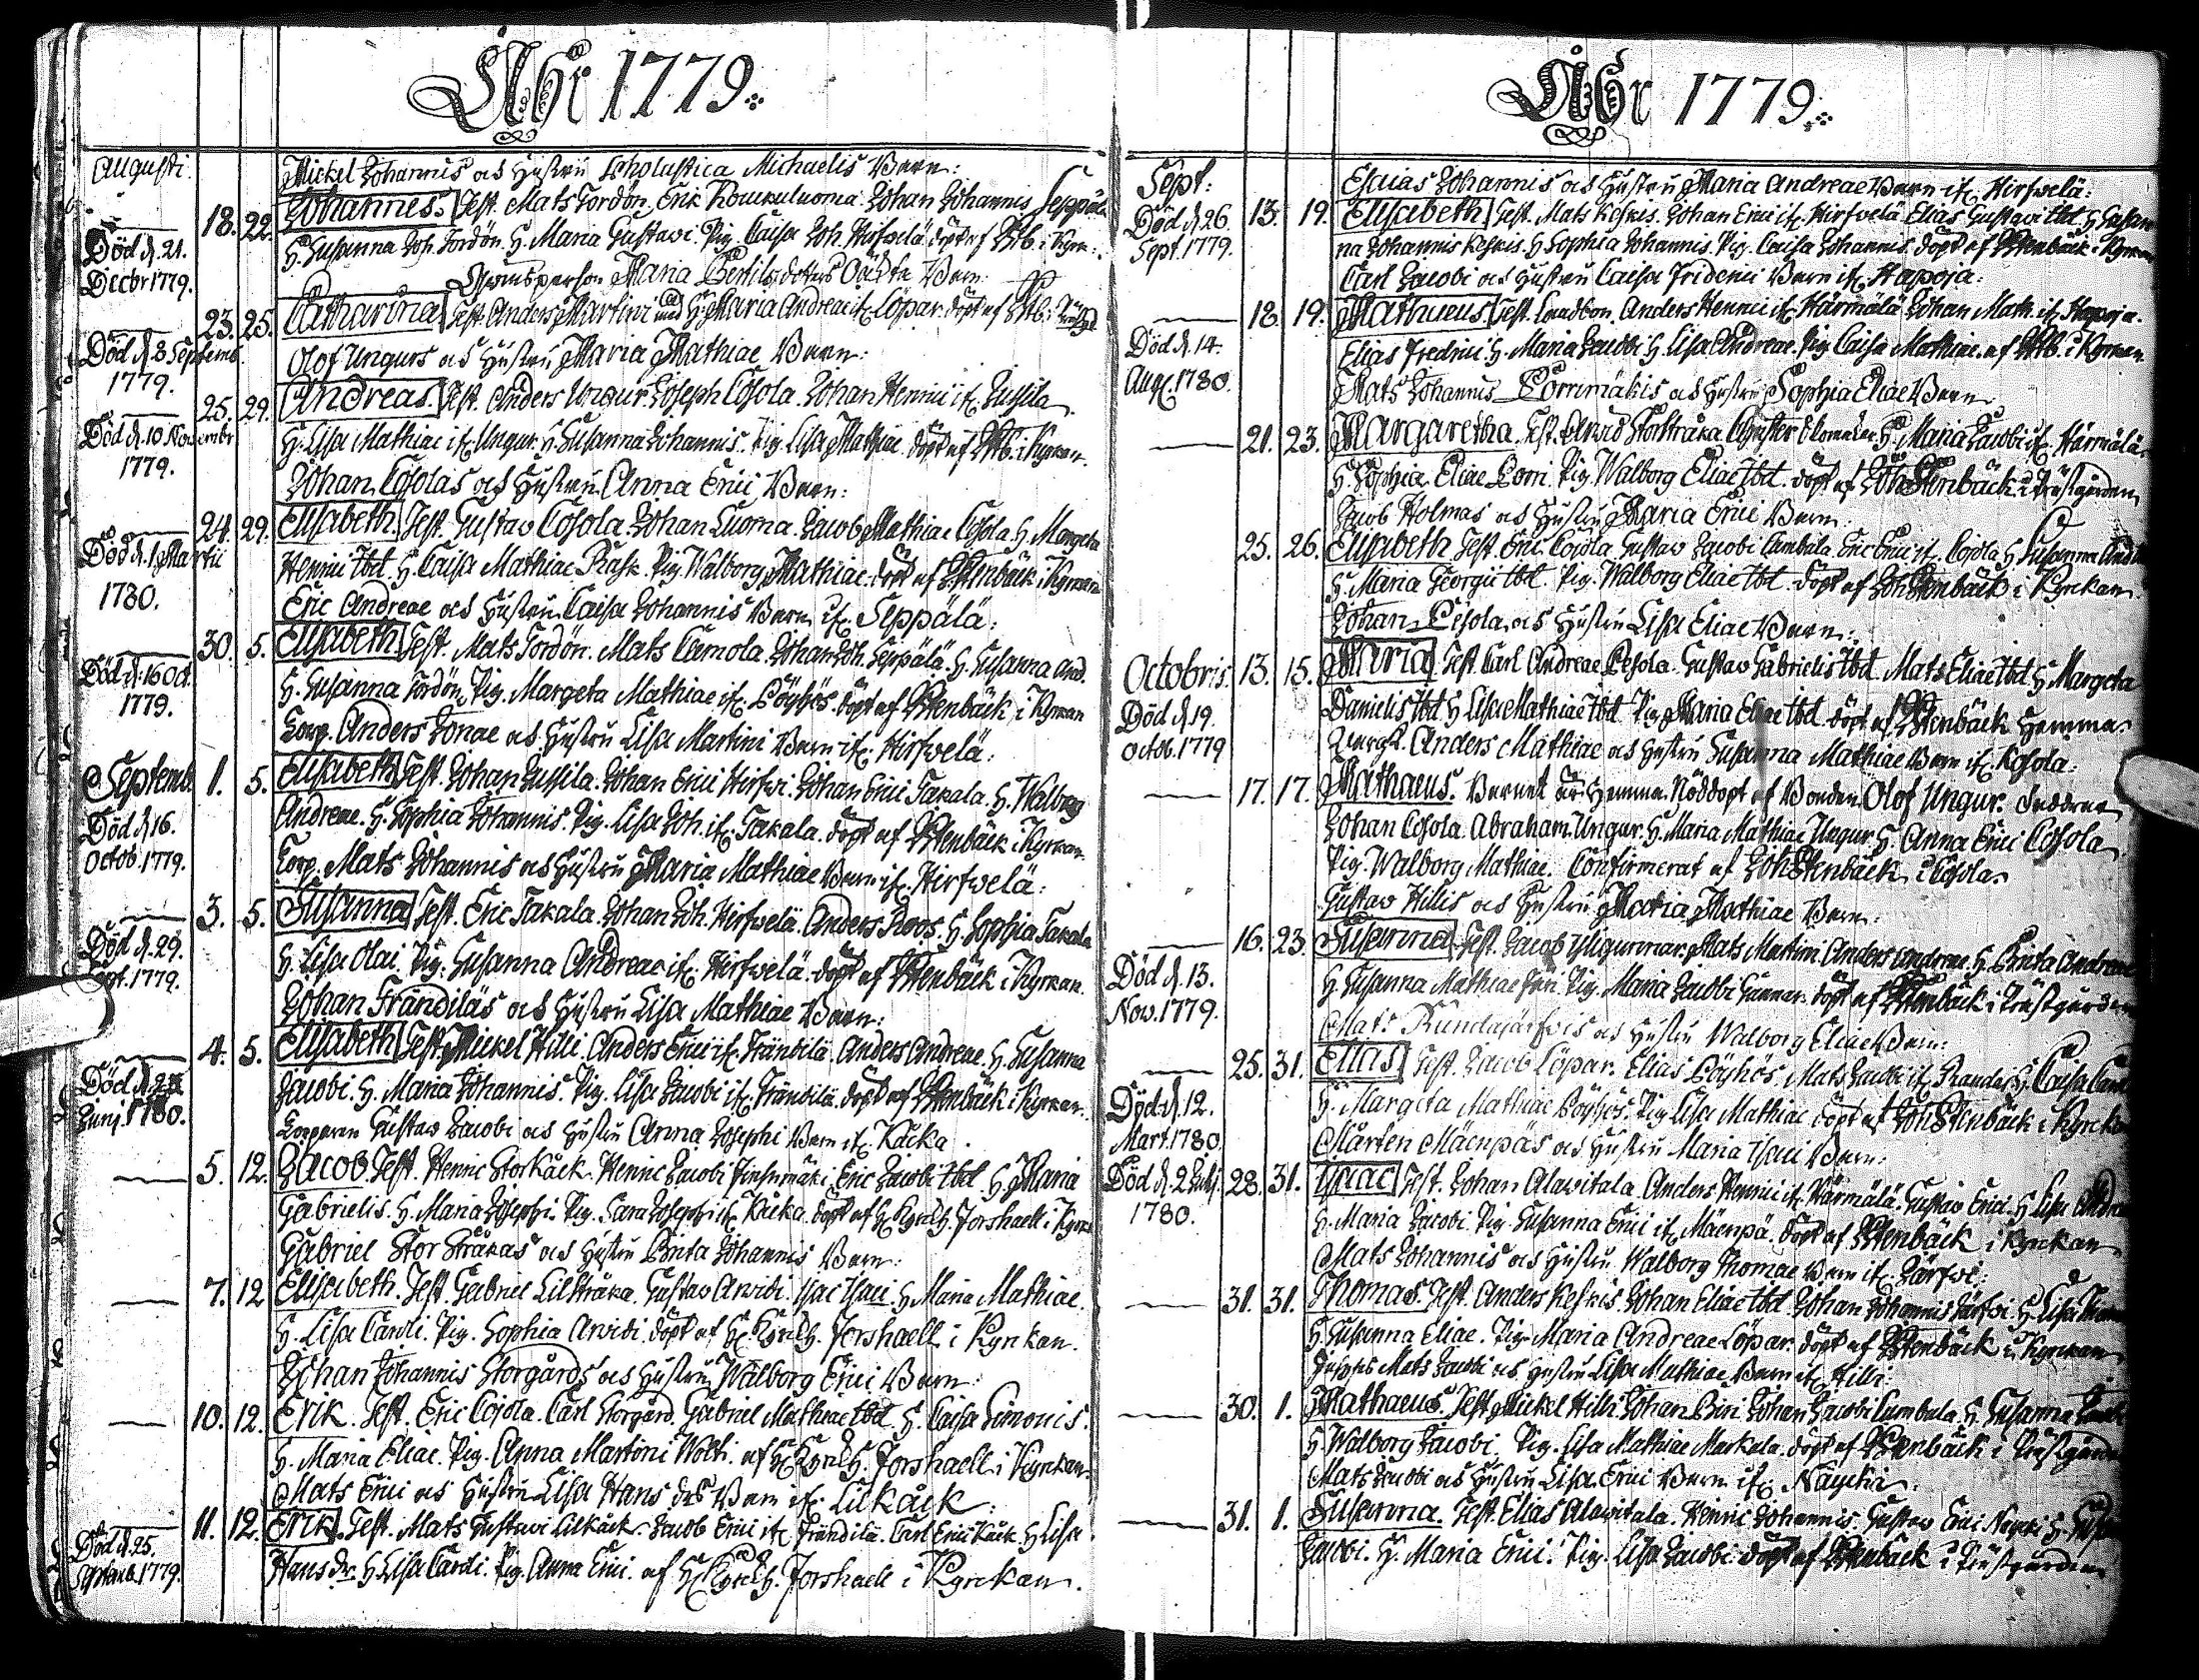 Åhr 1779.
Augusti.
Mickel Johannis och Hustru Scholastica Michaelis Barn:
18. 22. Johannes. Test. Mats Tordön. Erik Johan Johannis Seppälä
H. Susanna Joh. Tordön. H. Maria Gustavi. Pig. Caisa Joh. Hirfvelä döpt af
Död d. 21.
Decbr 1779.
Qwinsperson Maria Bertils dotters Oächta Barn.
23. 25. Catharina Test. Anders Martini med H. Maria Andreae ifr. Löpar. döpt af
Död d. 8 Septemb.
1779.
Olof Ungurs och Hustru Maria Mathiae Barn:
25. 29. Andreas. Test. Anders Ungur. Joseph Cojola. Johan Henrici ifr. Jussila.
Död d. 10 Novembr
1779.
H. Lisa Mathiae ifr. Ungur. H. Susanna Johannis. Pig. Lisa Mathiae. döpt af Stb. i Kyrkan.
Johan Cojolas och Hustru Anna Erici Barn:
24. 29. Elisabeth. Test. Gustav Cojola. Johan Luoma. Jacob Mathiae Cojola. H. Margeta
Död d. 1 Martii
1780.
Henrici Ibd. H. Caisa Mathiae Rask. Pig. Walborg Mathiae. döpt af Stenbäck i Kyrkan
Eric Andreae och Hustru Caisa Johannis Barn ifr. Seppälä:
30. 5. Elisabeth Test. Mats Tordön. Mats Lamola. Johan Joh. Seppälä. H. Susanna And.
Död d. 16 Oct.
1779.
H. Susanna Tordön. Pig. Margeta Mathiae ifr. Pöyhös. döpt af Stenbäck i Kyrkan
Korp. Anders Jonae och Hustru Lisa Martini Barn ifr. Hirfvelä:
Septemb. 1. 5. Elisabeth Test. Johan Jussila. Johan Erici Hirfvi. Johan Erici Takala. H. Walborg
Död d. 16.
Octob. 1779.
Andreae. H. Sophia Johannis. Pig. Lisa Joh. ifr. Takala. döpt af Stenbäck i Kyrkan.
Korp. Mats Johannis och Hustru Maria Mathiae Barn ifr. Hirfvelä:
3. 5. Susanna Test. Eric Takala. Johan Joh. Hirfvelä. Anders Roos. H. Sophia Takala
Död d. 29.
Sept. 1779.
H. Lisa Olai. Pig. Susanna Andreae ifr. Hirfvelä. döpt af Stenbäck i Kyrkan.
Johan Frändiläs och Hustru Lisa Mathiae Barn:
4. 5. Elisabeth Test. Mickel Hilli. Anders Erici ifr. Frändilä. Anders Andreae. H. Susanna
Död d.
Junj 1780.
Jacobi. H. Maria Johannis. Pig. Lisa Jacobi ifr. Frändilä. döpt af Stenbäck i Kyrkan.
Gustav Jacobi och Hustru Anna Josephi Barn ifr. Kacka.
5. 12. Jacob. Test. Henric Storkåck. Henric Jacobi Eric Jacobi Ibd. H. Maria
Gabrielis. H. Maria Josephi. Pig. Sara Josephi ifr. Kacka. döpt af Hr. Kyrkh. Forshaell i Kyrk
Gabriel Stor Stråkas och Hustru Brita Johannis Barn:
7. 12. Elisabeth. Test. Gabriel Lilstråka. Gustav Arvidi. Isac Isaci. H. Maria Mathiae.
H. Lisa Caroli. Pig. Sophia Arvidi. döpt af Hr. Kyrkh. Forshaell i Kyrckan.
Johan Johannis Storgårds och Hustru Walborg Erici Barn:
10. 12. Erik. Test. Eric Cojola. Carl Storgård. Gabriel Mathiae Ibd. H. Caisa Simonis.
H. Maria Eliae. Pig. Anna Martini Wolti. af Hr. Kyrkh. Forshaell i Kyrckan.
Mats Erici och Hustru Lisa Hans dr. Barn ifr. Lilkåck:
11. 12. Erik. Test. Mats Gustavi Lilkåck. Jacob Erici ifr. Frändilä. Carl Erici Kåck. H. Lisa
Död d. 25.
1779.
Hans dr. H. Lisa Caroli. Pig. Anna Erici. af Hr. Kyrkh. Forshaell i Kyrckan.
Åhr 1779.
Sept:
Esaias Johannis och Hustru Maria Andreae Barn ifr. Hirfvelä:
13. 19. Elisabeth Test. Mats Keskis. Johan Erici ifr. Hirfvelä. Elias Gustavi Ibd. H. Susan
Död d. 26.
Sept. 1779.
na Johannis Keskis. H. Sophia Johannis. Pig. Caisa Johannis. döpt af Stenbäck i Kyrkan
Carl Jacobi och Hustru Caisa Friderici Barn ifr. Hapoja:
18. 19. Mathaeus. Test. Landbon. Anders Henrici ifr. Härmälä. Johan Math. ifr. Hapoja.
Död d. 14.
Aug. 1780.
Elias Fredrici. H. Maria Jacobi. H. Lisa Andreae. Pig. Caisa Mathiae. af Stb. i Kyrkan
Mats Johannis Porrimäkis och Hustru Sophia Eliae Barn
21. 23. Margaretha. Test. Arvid Storstråka. Christer H. Maria Jacobi ifr. Härmälä.
H. Sophia Eliae Porri. Pig. Walborg Eliae Ibd. döpt af Joh. Stenbäck i Prästgården
Jacob Holmas och Hustru Maria Erici Barn.
25. 26. Elisabeth. Test. Eric Cojola. Gustav Jacobi Lambala. Eric Erici ifr. Cojola. H. Susanna
H. Maria Georgii Ibd. Pig. Walborg Eliae Ibd. döpt af Joh. Stenbäck i Kyrckan.
Johan Pesola och Hustru Lisa Eliae Barn:
Octobris. 13. 15. Maria. Test. Carl Andreae Pesola. Gustav Gabrielis Ibd. Mats Eliae Ibd. H. Margeta
Död d. 19.
Octob. 1779
Danielis Ibd. H. Lisa Mathiae Ibd. Pig. Maria Eliae Ibd. döpt af Stenbäck Hemma.
Anders Mathiae och Hustru Susanna Mathiae Barn ifr. Kojola:
17. 17. Mathaeus. Barnet är Hemma Nöddöpt af Bonden Olof Ungur. Faddrar
Johan Cojola. Abraham Ungur. H. Maria Mathiae Ungur. H. Anna Erici Cojola
Pig. Walborg Mathiae. Confirmerat af Joh. Stenbäck i Cojola.
Gustav Hillis och Hustru Maria Mathiae Barn:
16. 23. Susanna. Test. Jacob Yligunnar. Mats Martini. Anders Andreae. H. Brita Andreae
Död d. 13.
Nov. 1779.
H. Susanna Mathiae Pig. Maria Jacobi Gunnar. döpt af Stenbäck i Prästgården
Mats Rundajärfvis och Hustru Walborg Eliae Barn:
25. 31. Elias Test. Jacob Löpar. Elias Pöyhös. Mats Jacobi ifr. H. Caisa
Död d. 12.
Mart. 1780.
H. Margeta Mathiae Pöyhös. Pig. Lisa Mathiae döpt af Joh. Stenbäck i Kyrckan
Mårten Mäenpäs och Hustru Maria Isaci Barn:
28. 31. Isaac Test. Johan Alawitala. Anders Henrici ifr. Härmälä. Gustav Erici. H. Lisa
Död d. 2 Julj
1780.
H. Maria Jacobi. Pig. Susanna Erici ifr. Mäenpä. döpt af Stenbäck i Kyrckan
Mats Johannis och Hustru Walborg Thomae Barn ifr. Järfvi:
31. 31. Thomas. Test. Anders Keskis. Johan Eliae Ibd. Johan Johannis Järfvi. H. Lisa
H. Susanna Eliae. Pig. Maria Andreae Löpar. döpt af Stenbäck i Kyrckan
Mats Jacobi och Hustru Lisa Mathiae Barn ifr. Hilli:
30. 1. Mathaeus. Test. Mickel Hilli. Johan Biri. Johan Jacobi Lambala. H. Susanna
H. Walborg Jacobi. Pig. Lisa Mathiae Markala. döpt af Stenbäck i Prästgården
Mats Jacobi och Hustru Lisa Erici Barn ifr. Näycki:
31. 1. Susanna. Test. Elias Alawitala. Henric Johannis. Gustav Erici Näycki. H.
Jacobi. H. Maria Erici. Pig. Lisa Jacobi. döpt af Stenbäck i Prästgården